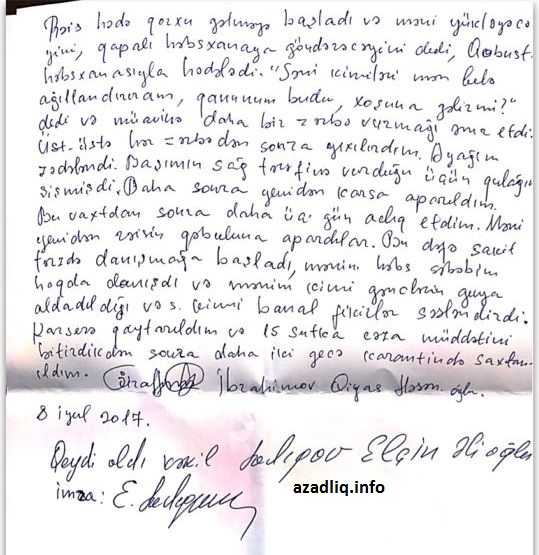 Rəis hədə qorxu gəlməyə başladı və məni yükləyəcə
yini, qapalı həbsxanaya göndərəcəyini dedi, Qobust.
həbsxanasıyla hədələdi. "Səni kimiləri mən belə
ağıllandırıram, qanunum budu, xoşuna gəlirmi?"
dedi və müavinə daha bir zərbə vurmağı əmr etdi.
Üst-üstə hər zərbədən sonra yıxılırdım. Ayağım
zədələndi. Başımın sağ tərəfinə vurduğu üçün qulağım
şişmişdi. Daha sonra yenidən karsa aparıldım.
Bu vaxtdan sonra daha üç gün aclıq etdim. Məni
yenidən rəisin qəbuluna apardılar. Bu dəfə sakit
tərzdə danışmağa başladı, mənim həbs səbəbim
haqda danışdı və mənim kimi gənclərin guya
aldadıldığı və s. kimi banal fikirlər səsləndirdi.
Karserə qaytarıldım və 15 sutka cəza müddətini
bitirdikdən sonra daha iki gecə karantində saxlan-
ıldım. İbrahimov Qiyas Həsən oğlu.
8 iyul 2017.
Qeydi aldı vəkil Sadıqov Elçin Əli oğlu
imza: E. Sadıqov
azadliq.info